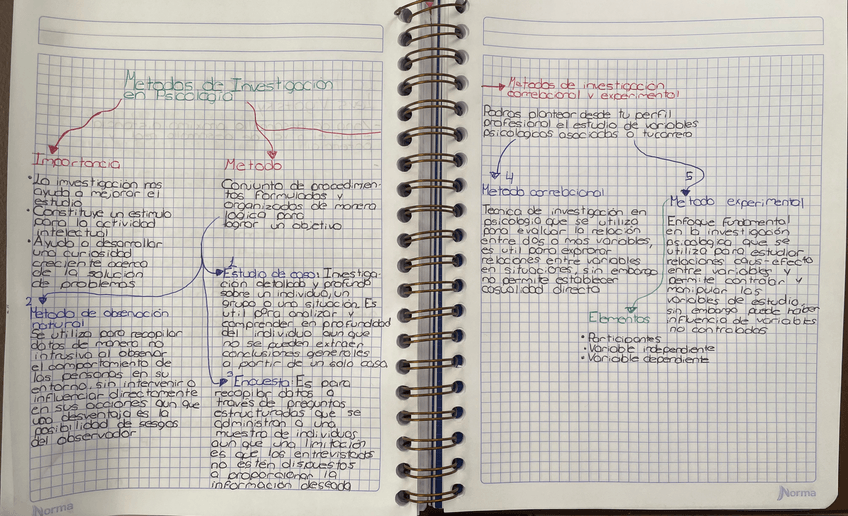 Metodos de Investigación
en Psicología
Importancia
• La investigación nos
ayuda a mejorar el
estudio
• Constituye un estimulo
para la actividad
intelectual
• Ayuda a desarrollar
una curiosidad
creciente acerca
de la solución
de problemas
Metodo
Conjunto de procedimien-
tos formulados y
organizados de manera
lógica para
lograr un objetivo
1
Estudio de caso: Investiga-
ción detallada y profunda
sobre un individuo, un
grupo o una situación. Es
util para analizar y
comprender en profundidad
del individuo aun que
no se pueden extraer
conclusiones generales
a partir de un solo caso
2
Metodo de observación
natural
Se utiliza para recopilar
datos de manera no
intrusiva al observar
el comportamiento de
las personas en su
entorno, sin intervenir o
influenciar directamente
en sus acciones aun que
una desventaja es la
posibilidad de sesgos
del observador
3
Encuesta Es para
recopilar datos a
través de preguntas
estructuradas que se
administran a una
muestra de individuos
aun que una limitación
es que los entrevistados
no estén dispuestos
a proporcionar la
información deseada
Norma
Metodos de investigación
correlacional y experimental
Podras plantear desde tu perfil
profesional el estudio de variables
psicologicas asociadas a tu carrera
4
Metodo correlacional
Tecnica de investigación en
psicología que se utiliza
para evaluar la relación
entre dos o mas variables,
es util para explorar
relaciones entre variables
en situaciones, sin embargo
no permite establecer
casualidad directa
5
Metodo experimental
Enfoque fundamental
en la investigación
psicologica que se
utiliza para estudiar
relaciones caus-efecto
entre variables y
permite controlar y
manipular las
variables de estudio,
sin embargo puede haber
influencia de variables
no controladas
Elementos
• Participantes
• Variable independiente
• Variable dependiente
Norma